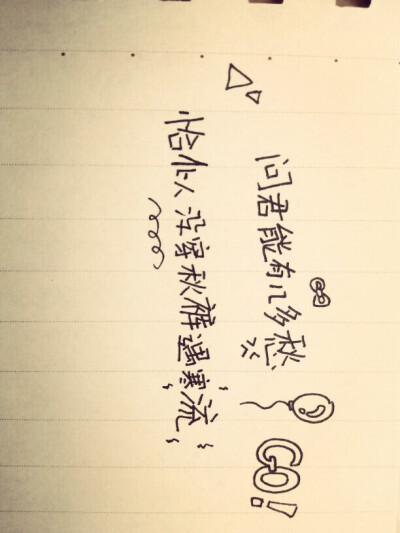 问君能有几多愁
GO!
恰似没穿秋裤遇寒流